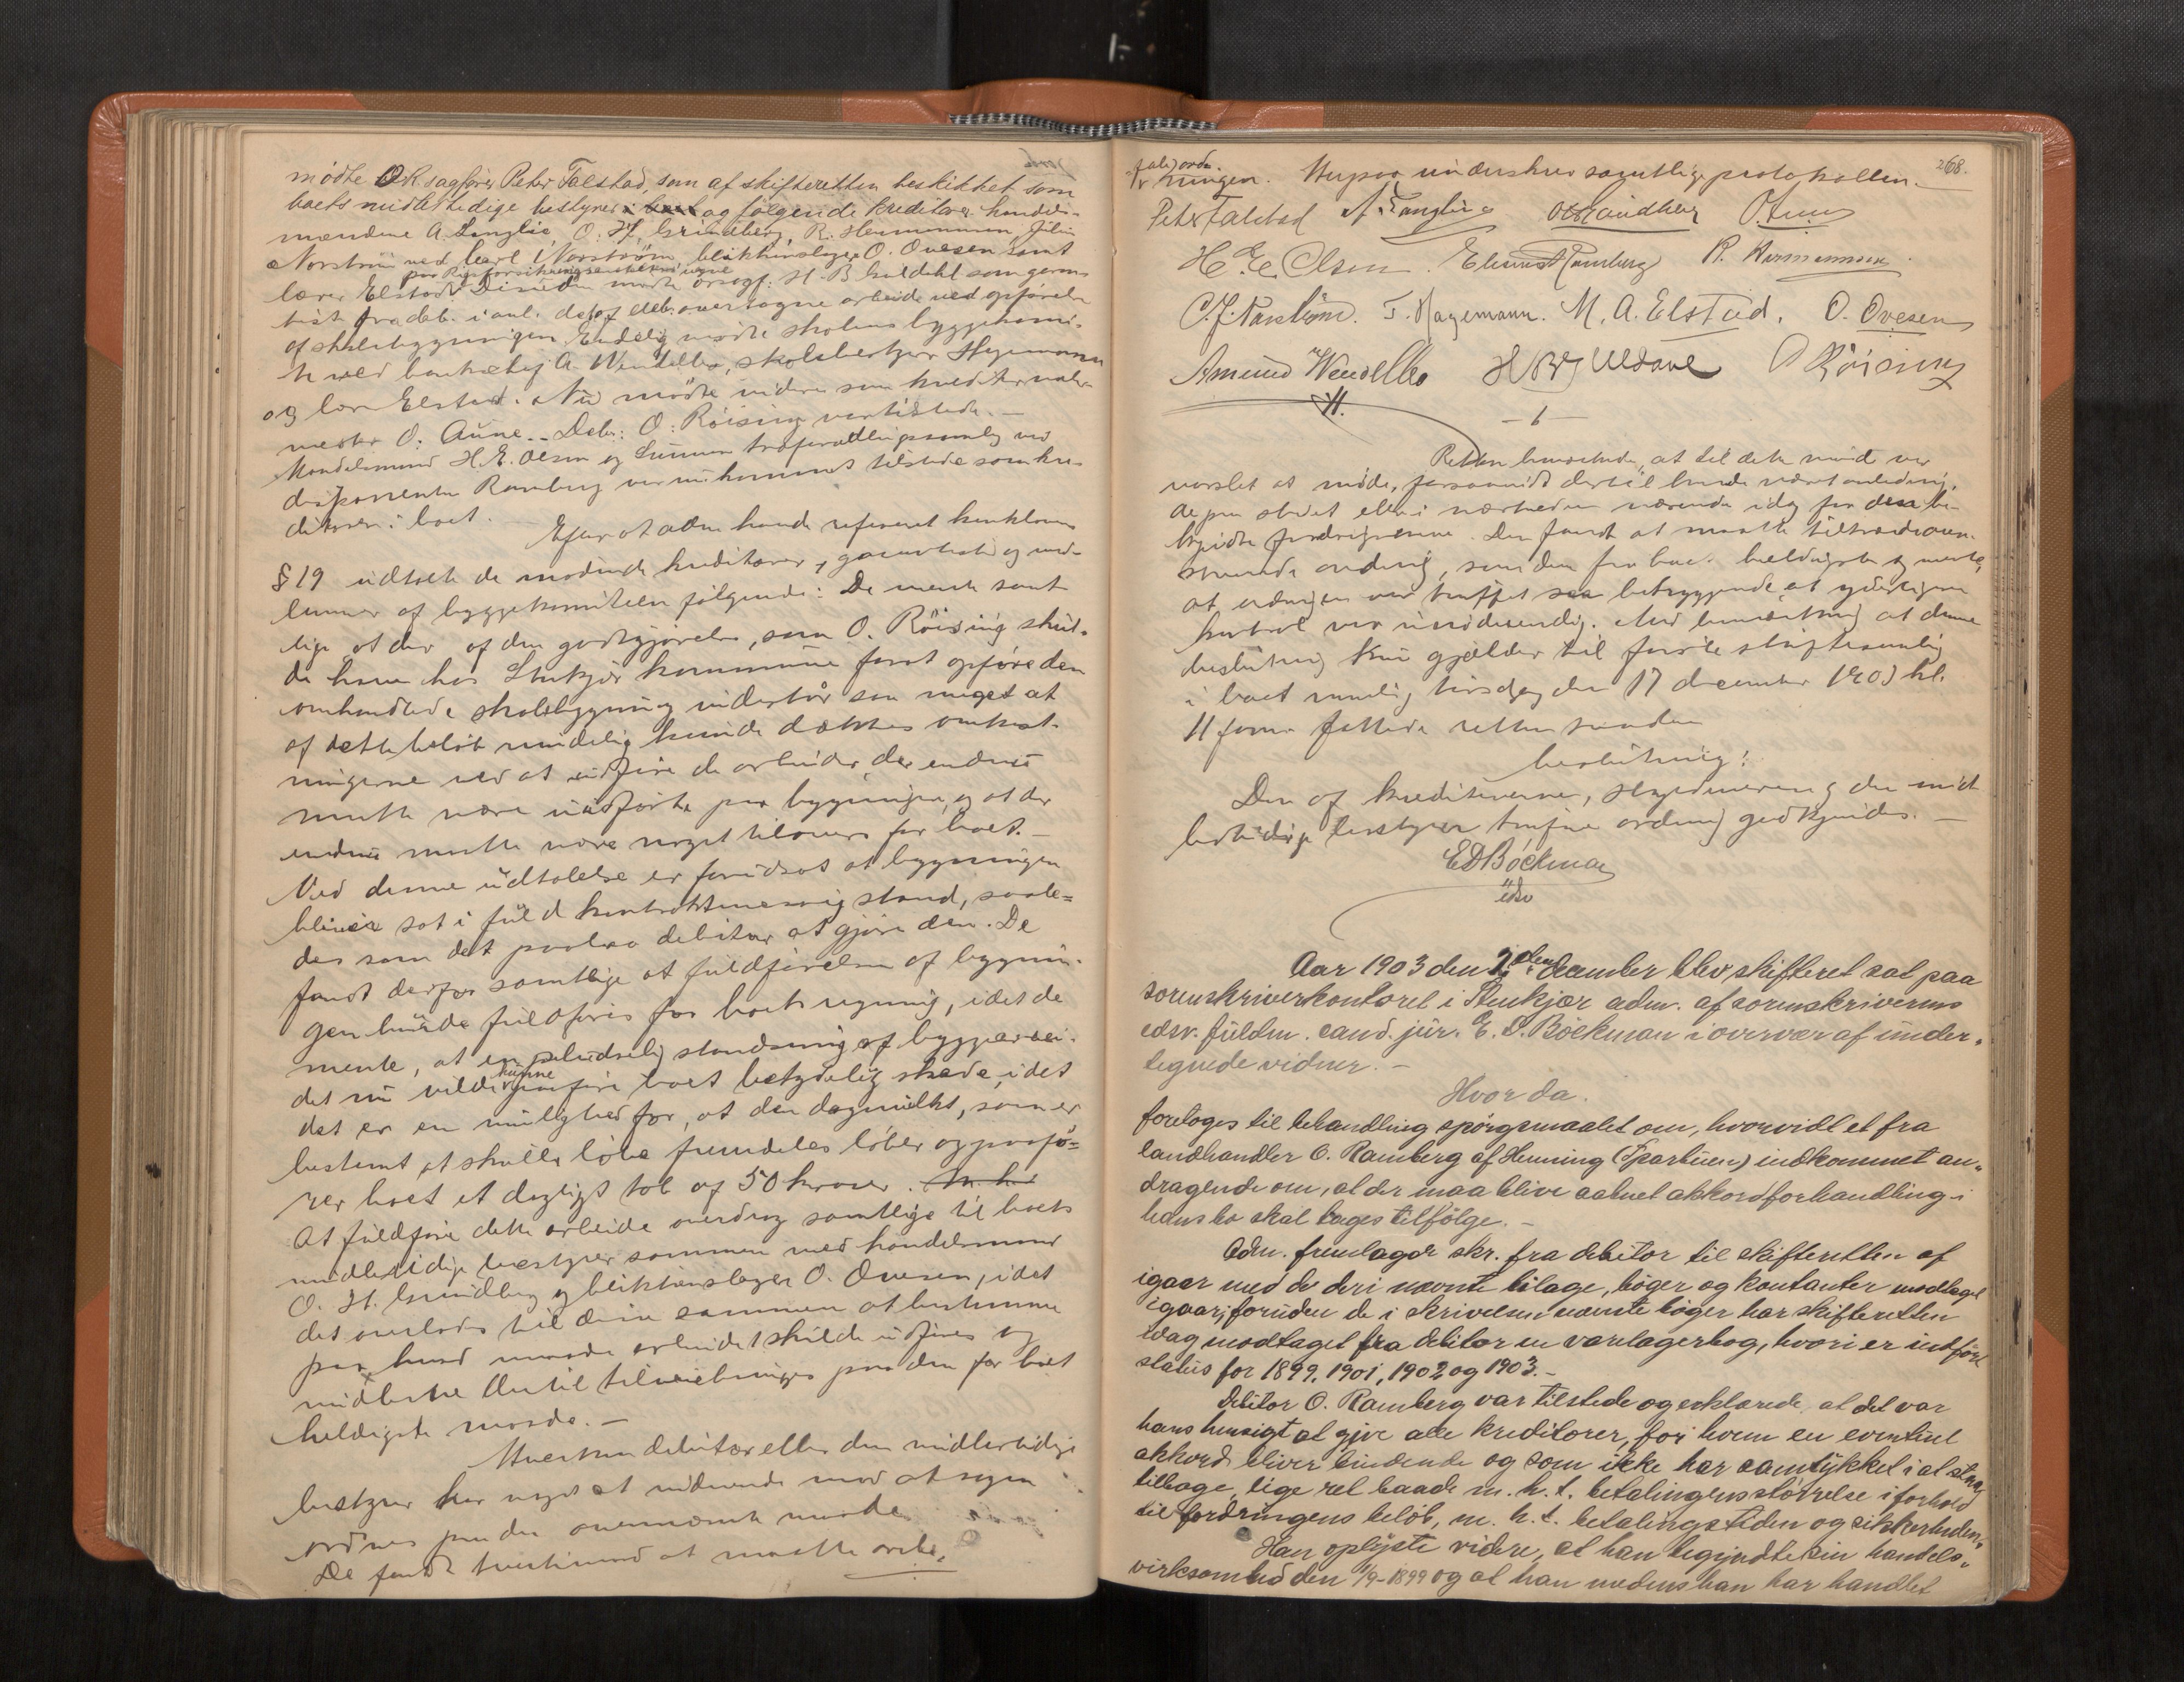 mødte O.R.sagfører Peter Falstad, som af skifteretten beskikket som
boets midlertidige bestyrer og følgende kreditorer: handels-
mændene A. Langlie, O. H. Grindberg, R. Hermannsen, Julin
Norström ved Carl Norström, blikkenslager O. Ovesen samt
lærer Elstad. Desuden mødte orsagf. H. B. Guldahl som garan-
tist fra deb. i anl. det af deb. overtagne arbeide ved opførelse
af skolebygningen. Endelig mødte skolens byggekomi-
te ved banksekr. A. Wendelbo, skolebestyrer Hagemann
og lærer Elstad. Nu mødte videre som kreditor maler-
mester O. Aune. Deb: O. Röising var tilstede. —
Handelsmand H. E. Olsen og Sunnan træforædlingsanstalt ved
disponenten Ramberg var nu kommet tilstede som kre-
ditorer i boet.
Efter at adm. havde refereret konklovens
§ 19 udtalte de mødende kreditorer, garantist og med-
lemmer af byggekomiteen følgende: De mente samt-
lige at der af den godtgjørelse, som O. Röising skul-
de have hos Stenkjær kommune for at opføre den
omhandlede skolebygning indestår saa meget at
af dette beløb rimelig kunde dækkes omkost-
ningerne ved at udføre de arbeider, der endnu
maatte være uudførte paa bygningen, og at der
endnu maatte være noget tilovers for boet. —
Ved denne udtalelse er forudsat at bygningen
bliver sat i fuld kontraktmæssig stand, saale-
des som det paalaa debitor at gjøre den. De
fandt derfor samtlige at fuldførelsen af bygnin-
gen burde fuldføres for boets regning, idet de
mente, at en pludselig standsning af byggearbei-
det nu vilde kunne paaføre boet betydelig skade, idet
det er en mulighed for, at den dagmulkt, som er
bestemt at skulle løbe fremdeles løber og paafø-
rer boet et dagligt tab af 50 kroner.
At fuldføre dette arbeide overdrog samtlige til boets
midlertidige bestyrer sammen med handelsmand
O. H. Grindberg og blikkenslager O. Ovesen, idet
det overlodes til disse sammen at bestemme
paa hvad maade arbeidet skulde udføres og
midlerne dertil tilveiebringes paa den for boet
heldigste maade. —
Hverken debitor eller den midlertidige
bestyrer har noget at indvende mod at sagen
ordnes paa den ovennævnte maade.
De fandt tvertimod at maatte anbe-
fale ordningen. Herpaa underskrev samtlige protokollen. — 268.
Peter Falstad A. Langlie O H Grindberg O. Aune
H. E. Olsen. Ramberg R. Hermannsen.
C. J. Norström. F. Hagemann. M. A. Elstad. O. Ovesen
Amund Wendelbo H B Guldahl O Röising
Retten bemærkede, at til dette møde var
varslet at møde, forsaavidt dertil havde været anledning,
de paa stedet eller i nærheden værende idag for dem be-
kjendte fordringshavere. Den fandt at maatte tiltræde oven-
staaende ordning, som den for boet heldigste og mente,
at ordningen var truffet saa betryggende at yderligere
kontrol var unødvendig. Med bemærkning at denne
beslutning kun gjælder til første skiftesamling
i boet nemlig tirsdag den 17 december 1903 kl.
11 form. fattede retten saadan
beslutning:
Den af kreditorerne, skyldneren og den mid-
lertidige bestyrer trufne ordning godkjendes. —
E D Böckman
edsv
Aar 1903 den 2den December blev skifteret sat paa
sorenskriverkontoret i Stenkjær adm. af sorenskriverens
edsv. fuldm. cand. jur. E. D. Böckman i overvær af under-
tegnede vidner. —
Hvor da.
foretoges til behandling spørgsmaalet om, hvorvidt et fra
landhandler O. Ramberg af Henning (Sparbuen) indkommet an-
dragende om, at der maa blive aabnet akkordforhandling i
hans bo skal tages tilfölge. —
Adm. fremlagde skr. fra debitor til skifteretten af
igaar med de deri nævnte bilage, bøger og kontanter modtaget
igaar; foruden de i skrivelsen nævnte bøger har skifteretten
idag modtaget fra debitor en varelagerbog, hvori er indført
status for 1899, 1901, 1902 og 1903. —
Debitor O. Ramberg var tilstede og erklærede, at det var
hans hensigt at give alle kreditorer, for hvem en eventuel
akkord bliver bindende og som ikke har samtykket i at staa
tilbage, lige ret baade m. h. t. betalingens størrelse i forhold
til fordringens beløb, m. h. t. betalingstiden og sikkerheden.
Han oplyste videre, at han begyndte sin handels-
virksomhed den 1/9-1899 og at han medens han har handlet